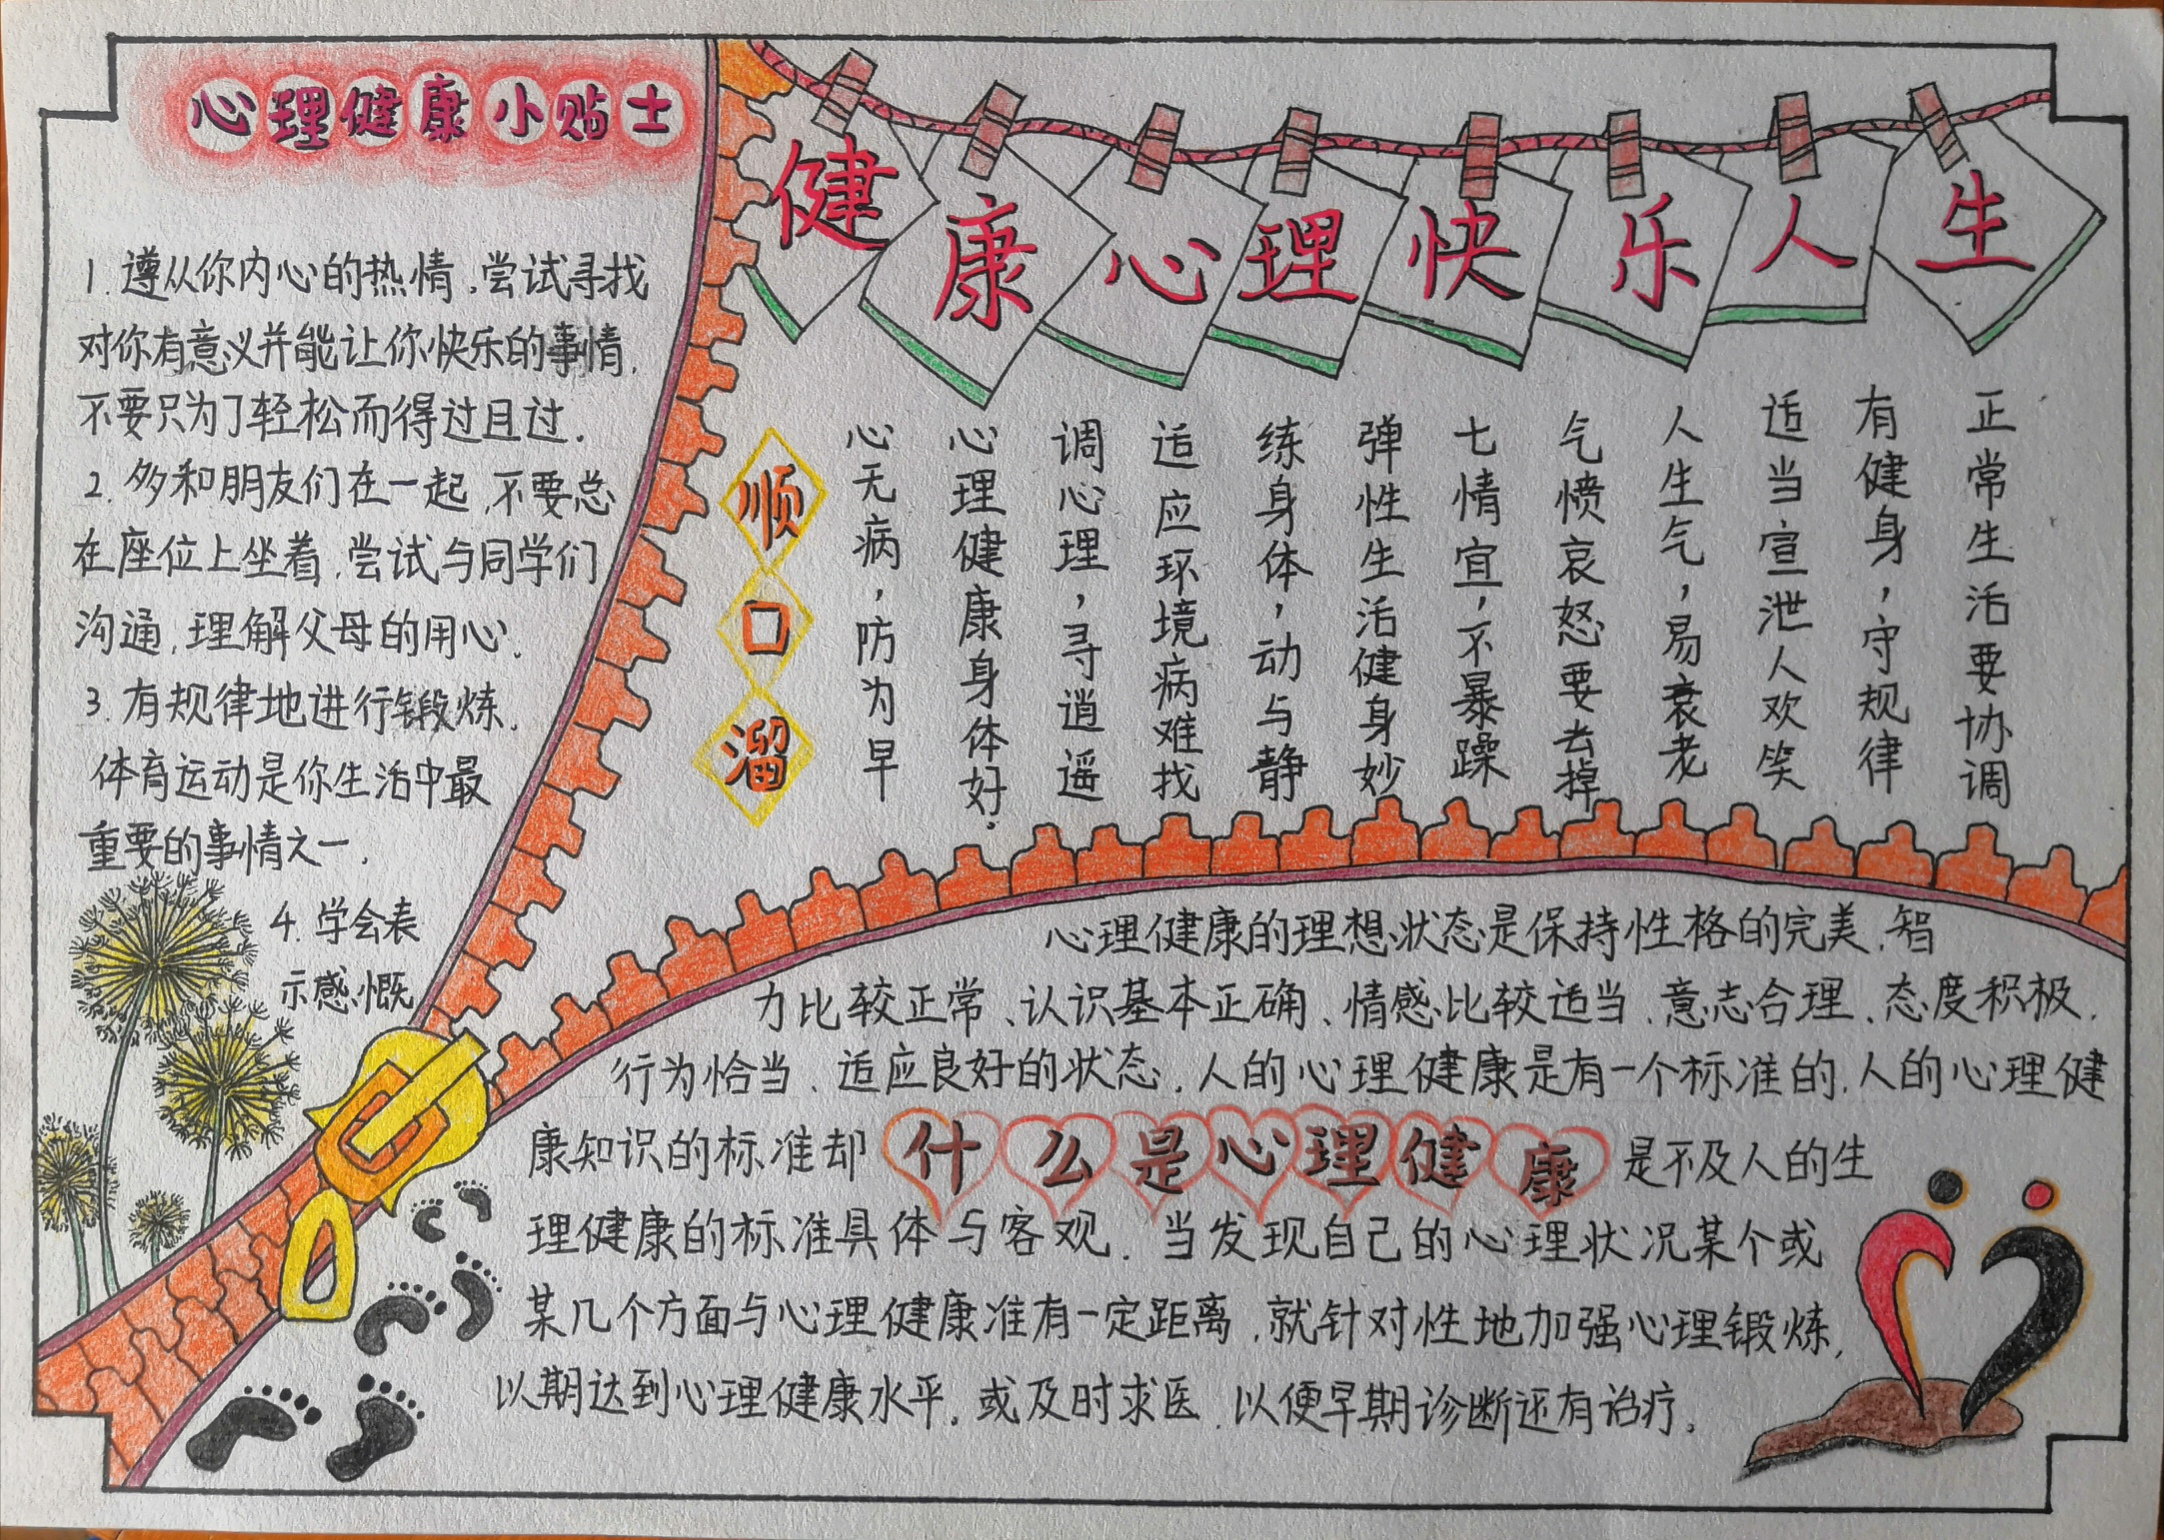 心理健康小贴士
1.遵从你内心的热情,尝试寻找
对你有意义并能让你快乐的事情.
不要只为了轻松而得过且过.
2.多和朋友们在一起,不要总
在座位上坐着,尝试与同学们
沟通,理解父母的用心.
3.有规律地进行锻炼.
体育运动是你生活中最
重要的事情之一.
4.学会表
示感慨
健康心理快乐人生
顺口溜
心无病,防为早
心理健康身体好.
调心理,寻逍遥
适应环境病难找
练身体,动与静
弹性生活健身妙
七情宜,不暴躁
气愤哀怒要去掉
人生气,易衰老
适当宣泄人欢笑
有健身,守规律
正常生活要协调
心理健康的理想状态是保持性格的完美、智
力比较正常、认识基本正确、情感比较适当、意志合理、态度积极、
行为恰当、适应良好的状态.人的心理健康是有一个标准的.人的心理健
康知识的标准却
什么是心理健康
是不及人的生
理健康的标准具体与客观.当发现自己的心理状况某个或
某几个方面与心理健康准有一定距离,就针对性地加强心理锻炼,
以期达到心理健康水平。或及时求医,以便早期诊断还有治疗。